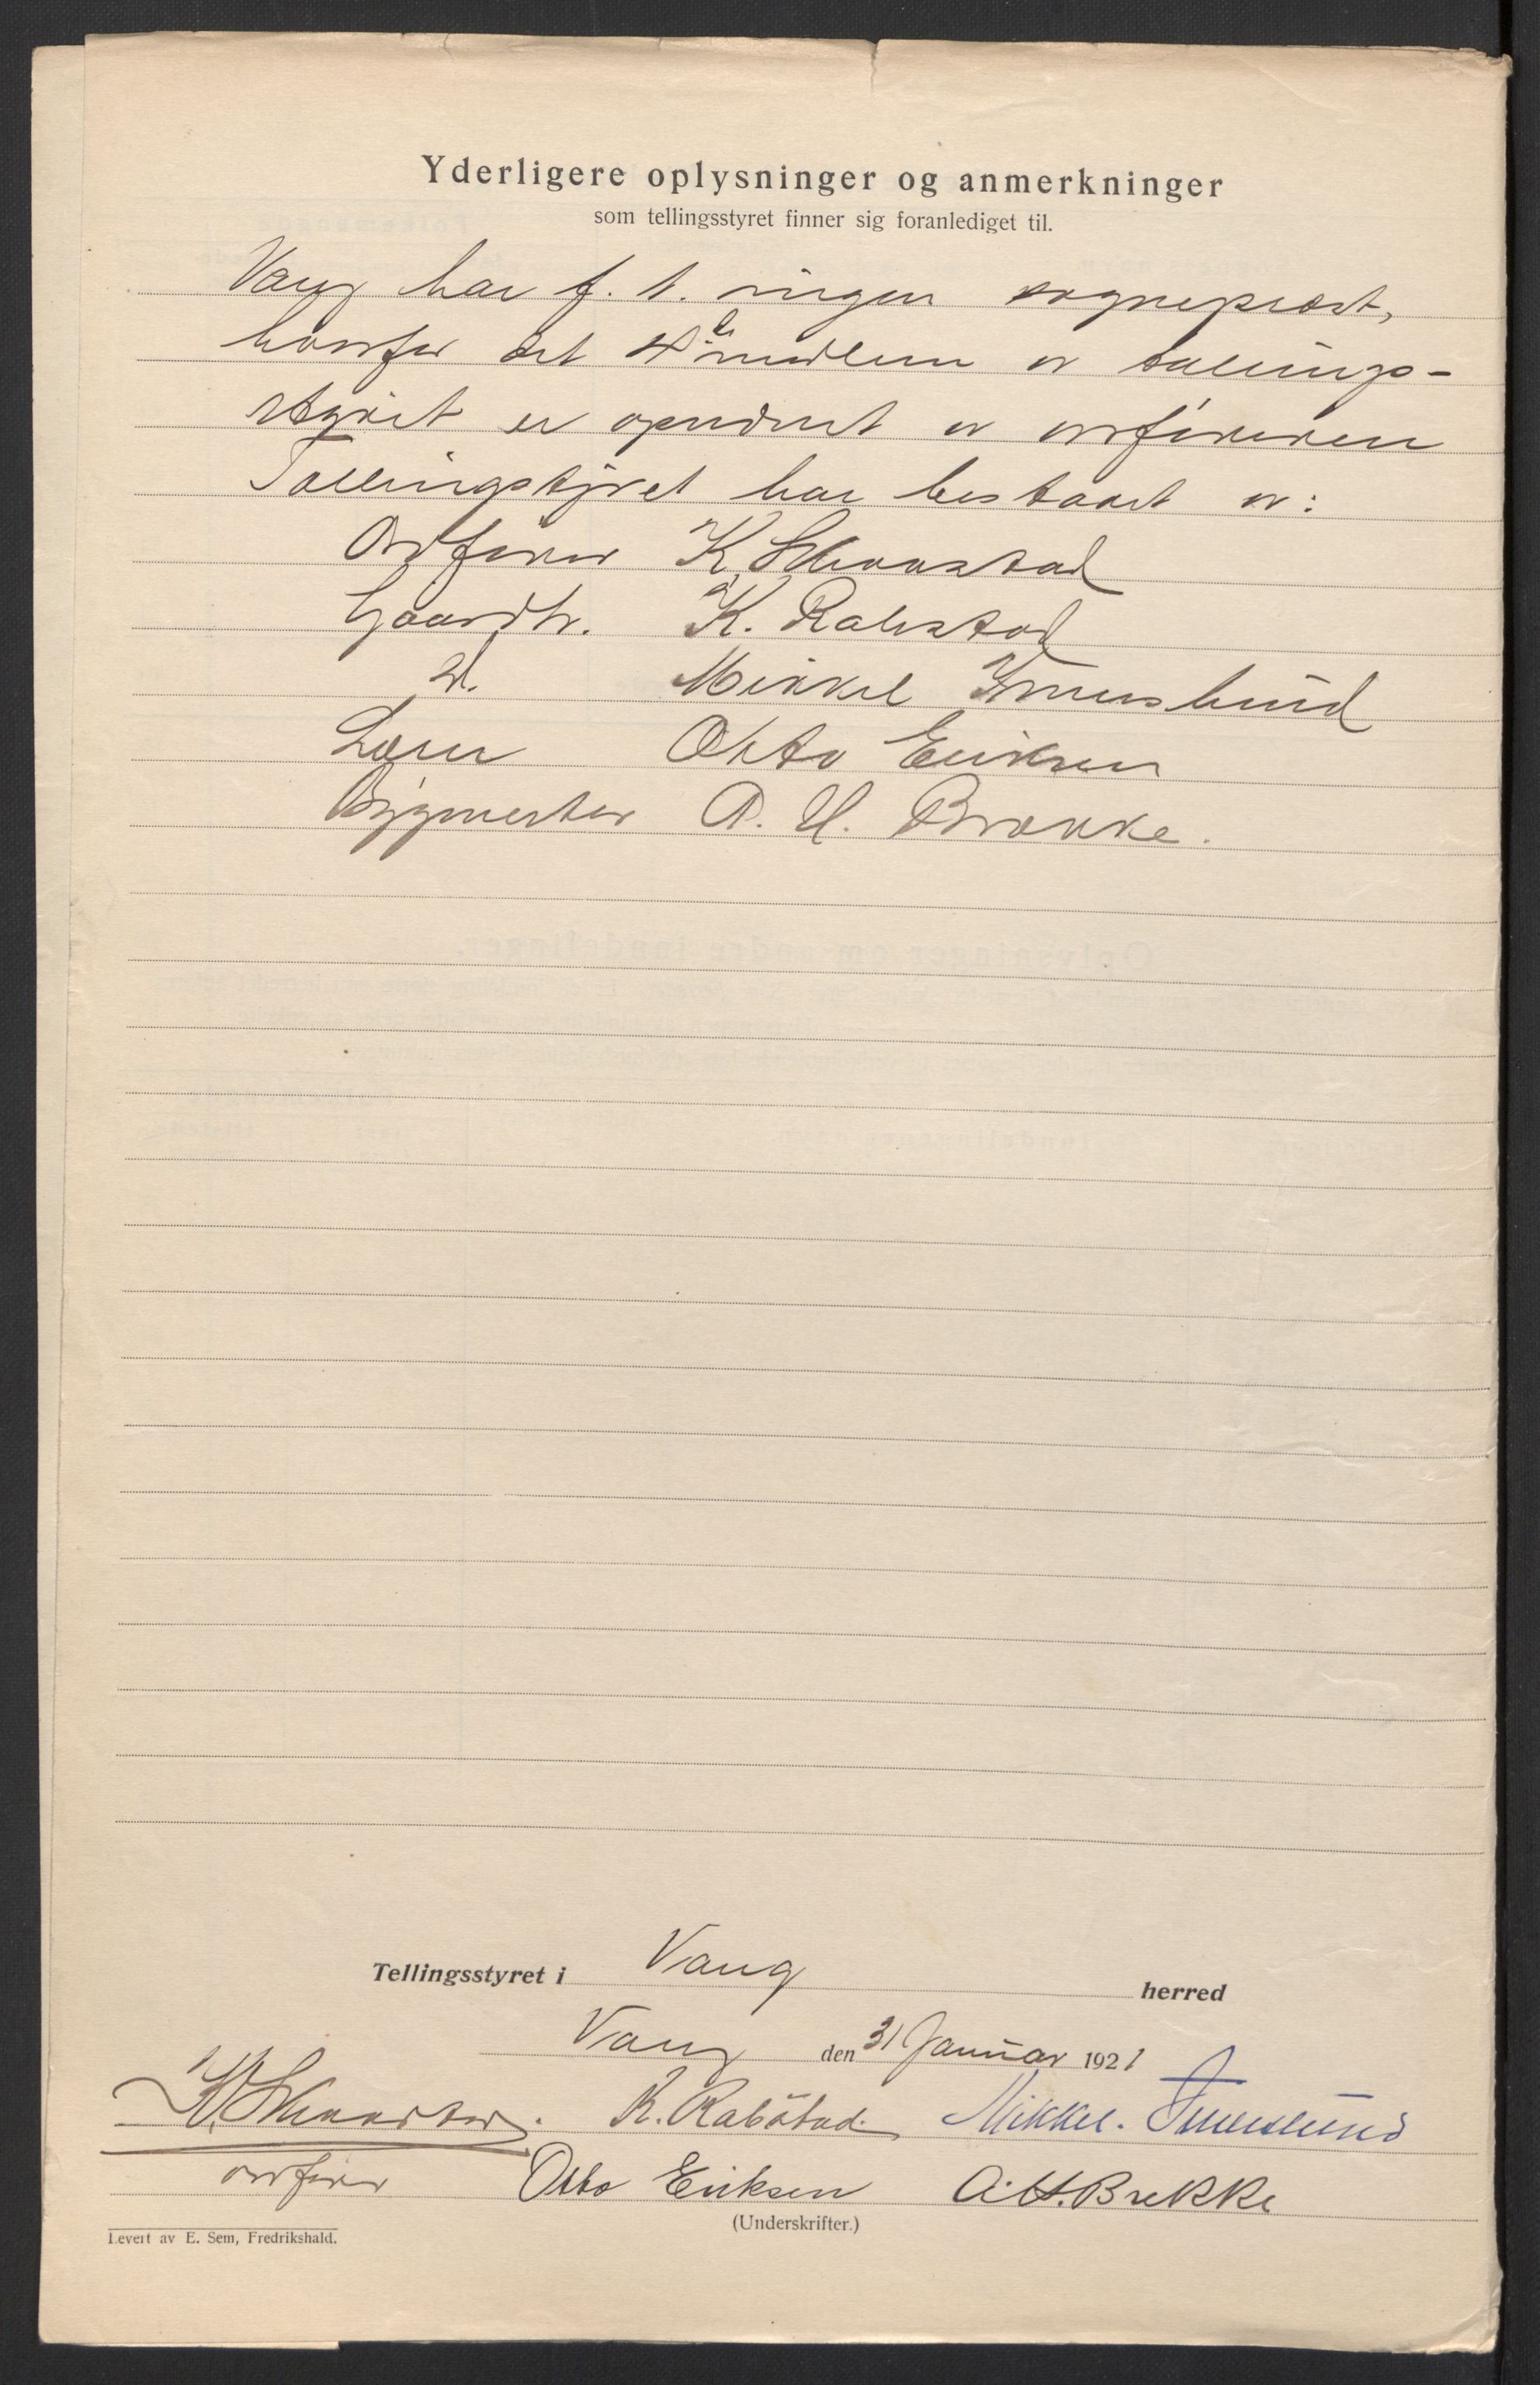 Yderligere oplysninger og anmerkninger
som tellingsstyret finner sig foranlediget til.
Vang har f. t. ingen sogneprest,
hvorfor det 4de medlem av tællings-
styret er opnævnt av ordføreren
Tællingsstyret har bestaaet av:
Ordfører K. Skaarstad
Gaardbr. K. Rabstad
d. Mikkel Imerslund
Lærer Otto Eriksen
Bygmester A. H. Brække.
Tellingsstyret i Vang herred
Vang den 31 Januar 1921
K. Skaarstad. K. Rabstad. Mikkel. Imerslund
ordfører Otto Eriksen A. H. Brekke
(Underskrifter.)
Levert av E. Sem, Fredrikshald.